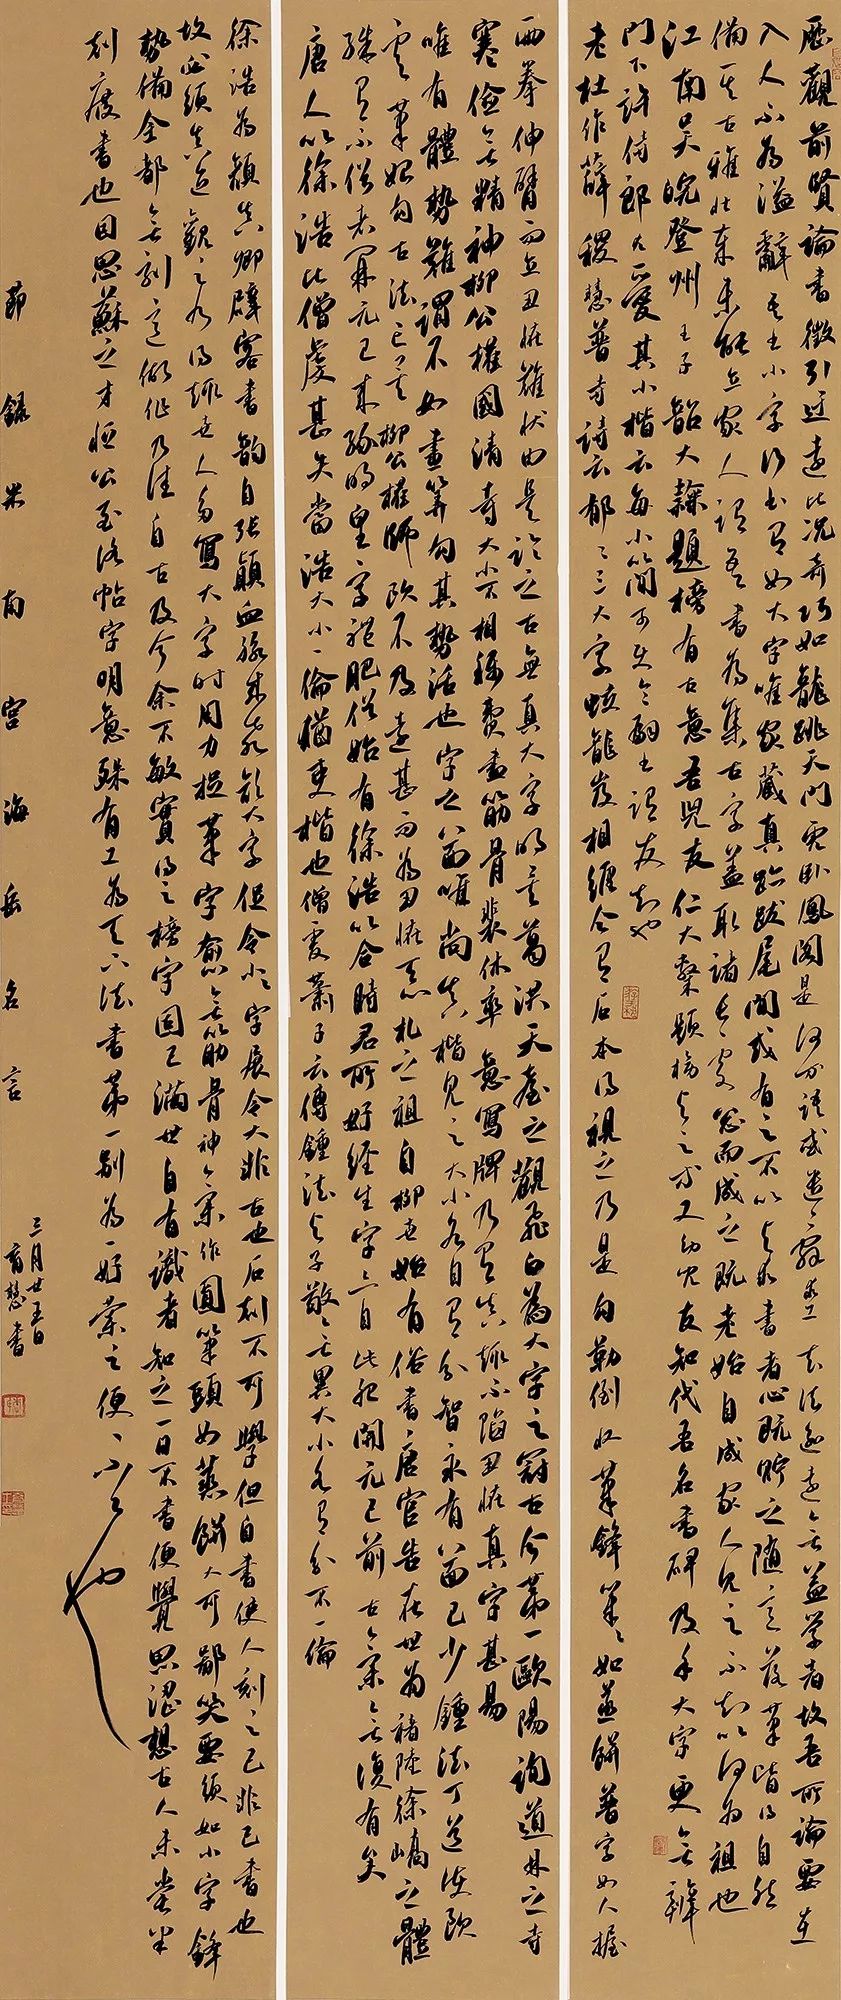 歷觀前賢論書徵引迂遠比況奇巧如龍跳天門虎臥鳳閣是何等語或遣辭求工去法逾遠無益學者故吾所論要在
入人不為溢辭吾書小字行書有如大字唯家藏真跡跋尾間或有之不以與求書者心既貯之隨意落筆皆得自然
備其古雅壯歲未能立家人謂吾書為集古字蓋取諸長處總而成之既老始自成家人見之不知以何為祖也
江南吳皖登州王子韶大隸題榜有古意吾兒友仁大隸題榜與之等又幼兒友知代吾名書碑及手大字更無辨
門下許侍郎尤愛其小楷云每小簡可使令嗣書謂友知也
老杜作薛稷慧普寺詩云鬱鬱三大字蛟龍岌相纏今有石本得視之乃是勾勒倒收筆鋒筆筆如蒸餅普字如人握
兩拳伸臂而立醜怪難狀由是論之古無真大字明矣葛洪天臺之觀飛白為大字之冠古今第一歐陽詢道林之寺
寒儉無精神柳公權國清寺大小不相稱費盡筋骨裴休率意寫牌乃有真趣不陷醜怪真字甚易
唯有體勢難謂不如畫算勻其勢活也字之八面唯尚真楷見之大小各自有分智永有八面已少鍾法丁道護歐
虞筆始勻古法亡矣柳公權師歐不及遠甚而為醜怪惡札之祖自柳世始有俗書唐官告在世為褚陸徐嶠之體
殊有不俗者開元已來緣明皇字體肥俗始有徐浩以合時君所好經生字亦自此肥開元已前古氣無復有矣
唐人以徐浩比僧虔甚失當浩大小一倫猶吏楷也僧虔蕭子雲傳鍾法與子敬無異大小各有分不一倫
徐浩為顏真卿辟客書韻自張顛血脈來教顏大字促令小小字展令大非古也石刻不可學但自書使人刻之已非己書也
故必須真跡觀之乃得趣世人多寫大字時用力捉筆字愈無筋骨神氣作圓筆頭如蒸餅大可鄙笑要須如小字鋒
勢備全都無刻意做作乃佳自古及今余不敏實得之榜字固已滿世自有識者知之一日不書便覺思澀想古人未嘗半
刻廢書也因思蘇之才恒公至洛帖字明意殊有工為天下法書第一別為一好縈之便便不工也
節錄米南宮海岳名言
三月廿五日